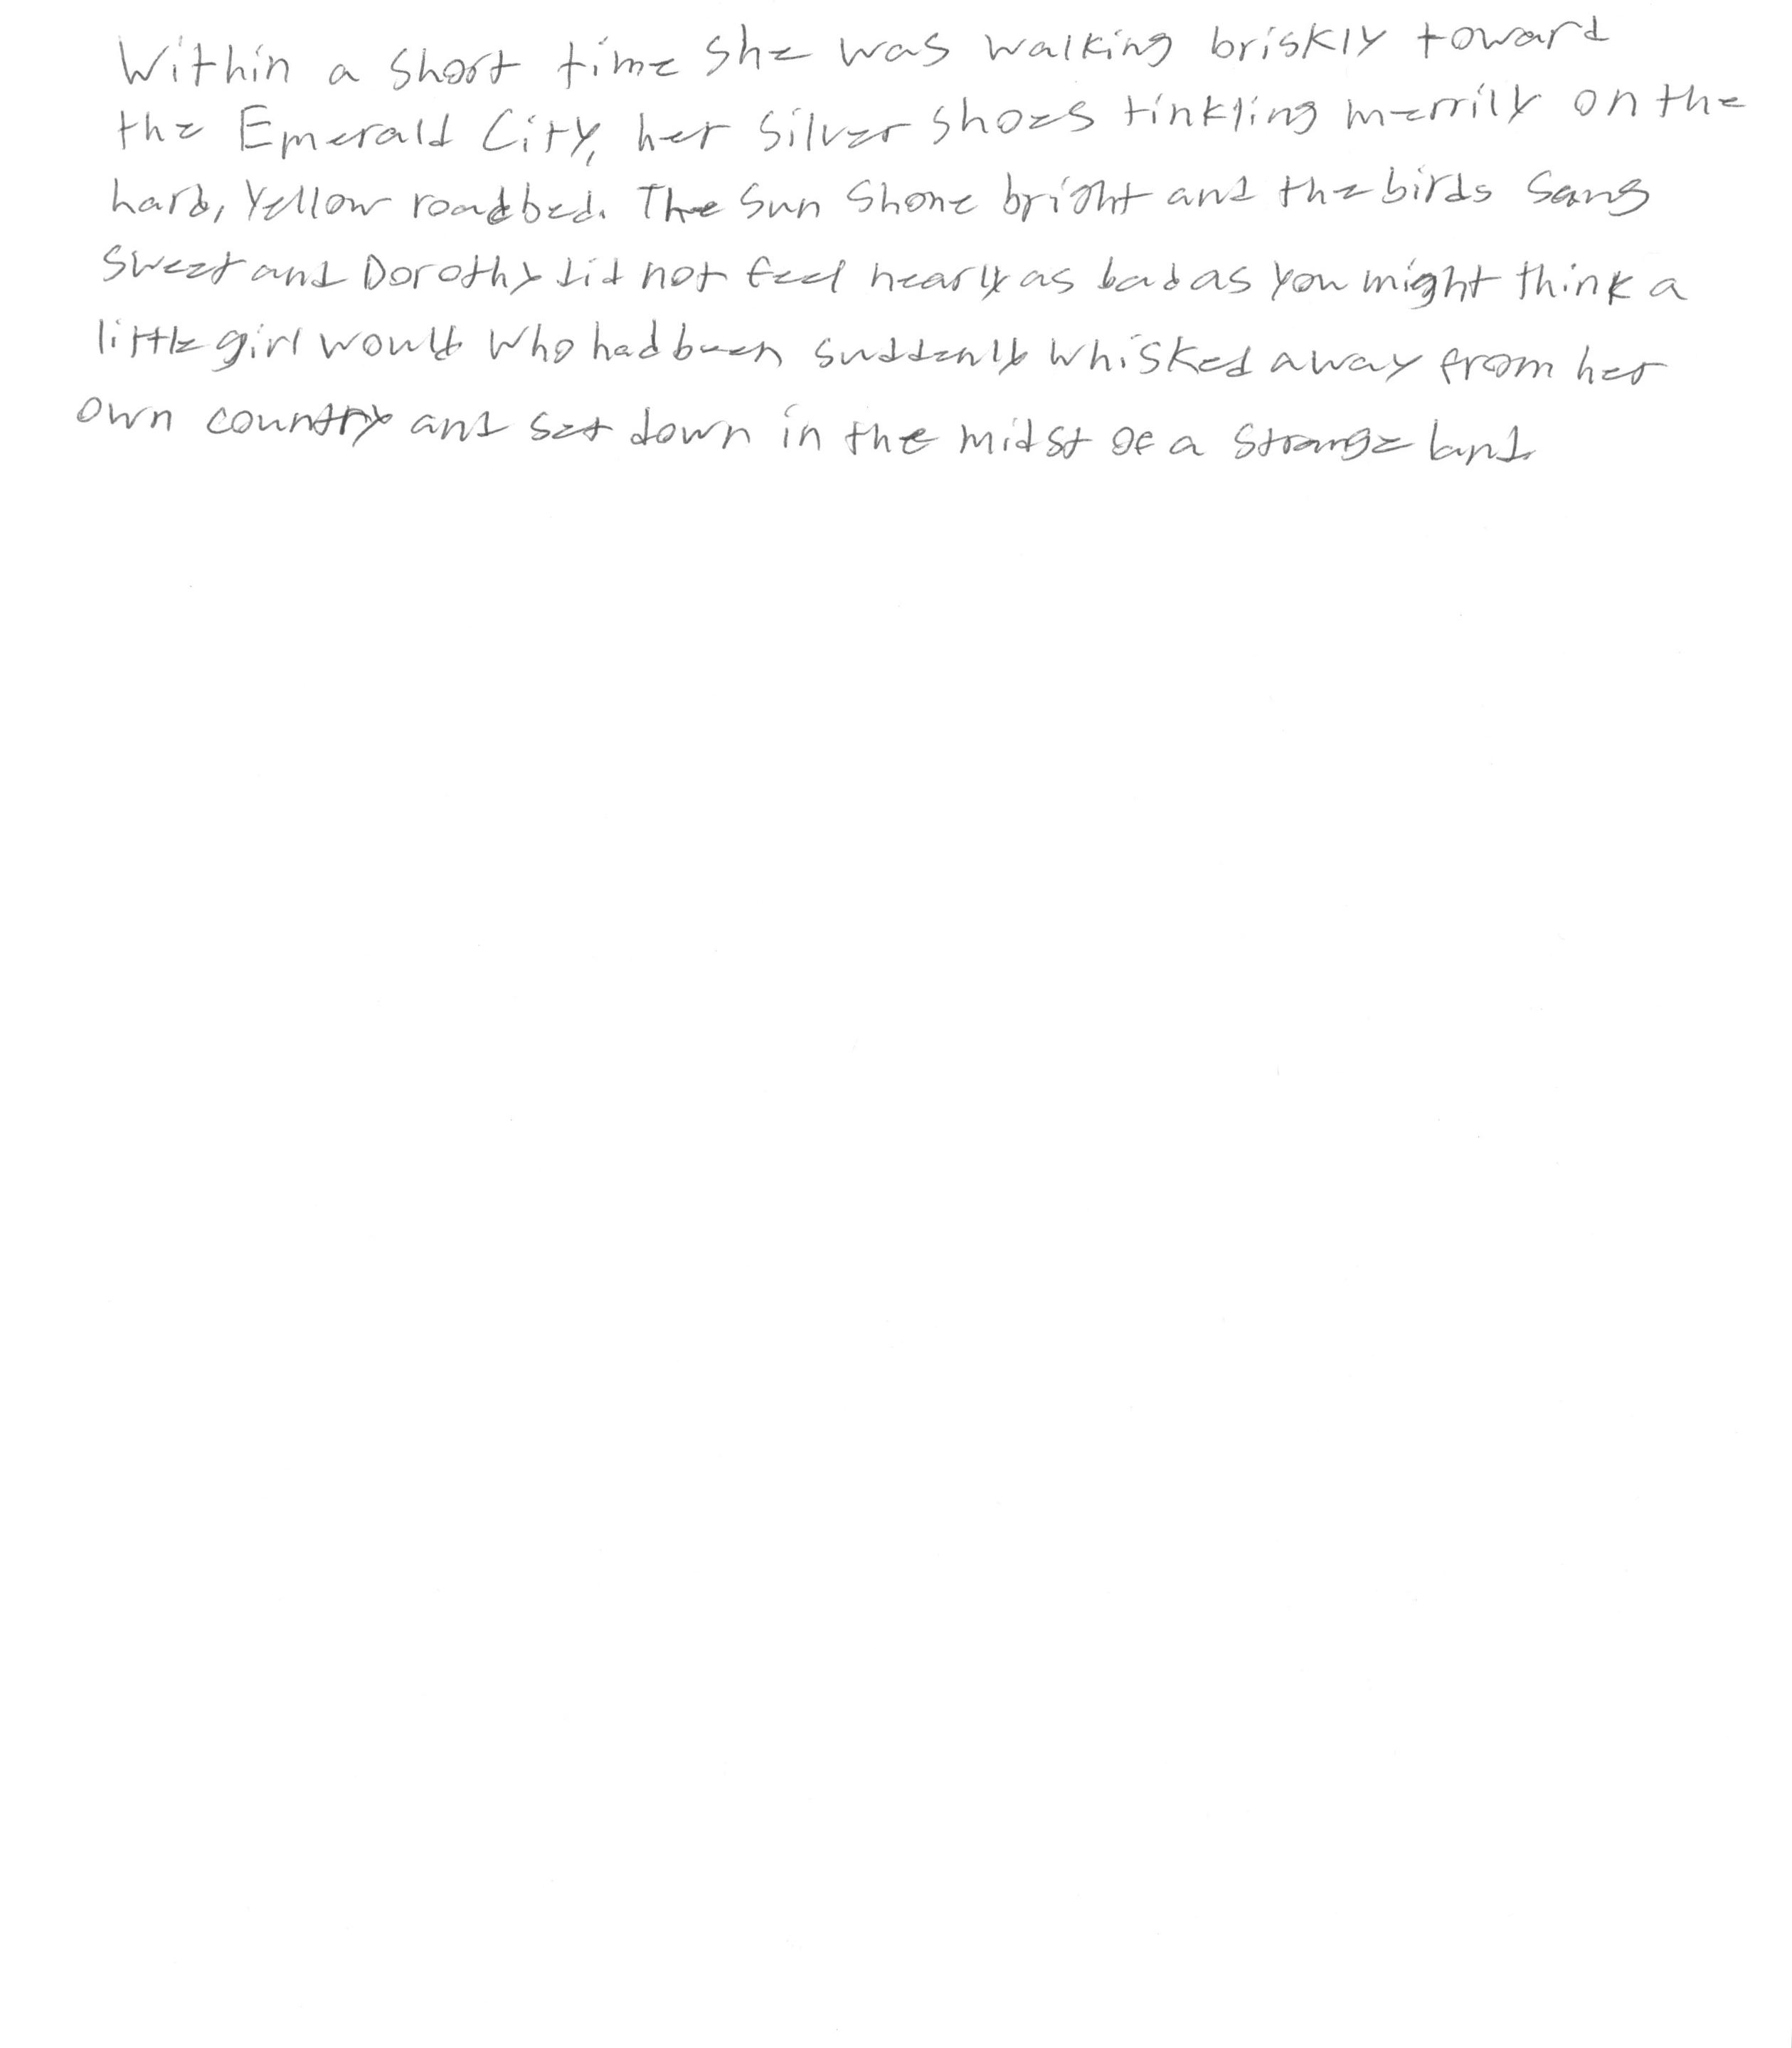 Within a short time she was walking briskly toward
the Emerald City, her Silver shoes tinkling merrily on the
hard, yellow roadbed. The sun shone bright and the birds sang
sweet and Dorothy did not feel nearly as bad as you might think a
little girl would who had been suddenly whisked away from her
own country and set down in the midst of a strange land.